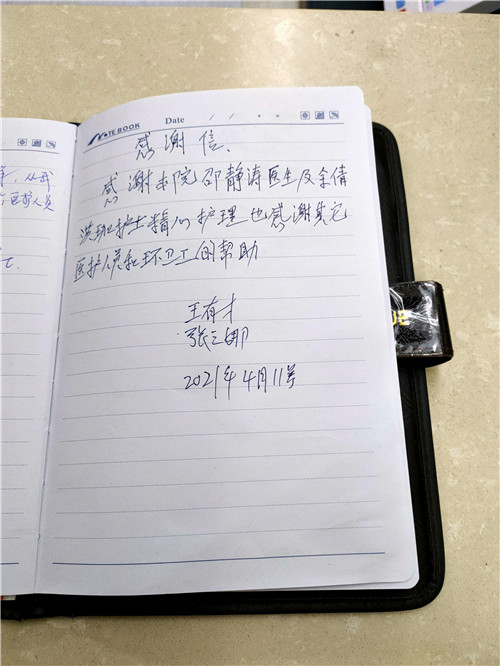 NOTE BOOK Date / /
感谢信、
感谢本院邵静涛医生及余倩
护士精心护理也感谢其它
医护人员和环卫工的帮助
王有才
张三娜
2021年4月11号
医护人员